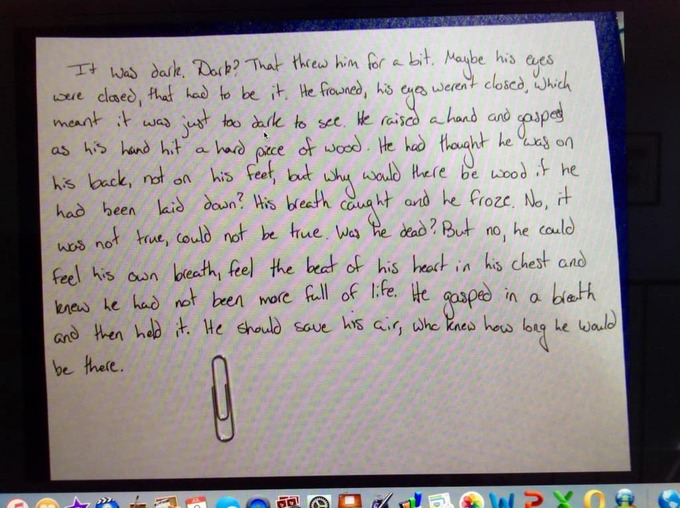 It was dark. Dark? That threw him for a bit. Maybe his eyes
were closed, that had to be it. He frowned, his eyes weren't closed, which
meant it was just too dark to see. He raised a hand and gasped
as his hand hit a hard piece of wood. He had thought he was on
his back, not on his feet, but why would there be wood if he
had been laid down? His breath caught and he froze. No, it
was not true, could not be true. Was he dead? But no, he could
feel his own breath, feel the beat of his heart in his chest and
knew he had not been more full of life. He gasped in a breath
and then held it. He should save his air, who knew how long he would
be there.